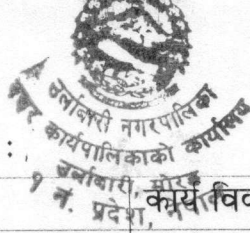 उर्लाबारी नगरपालिका
नगर कार्यपालिकाको कार्यालय
उर्लाबारी, मोरङ
१ नं. प्रदेश, नेपाल
:
कार्य विव